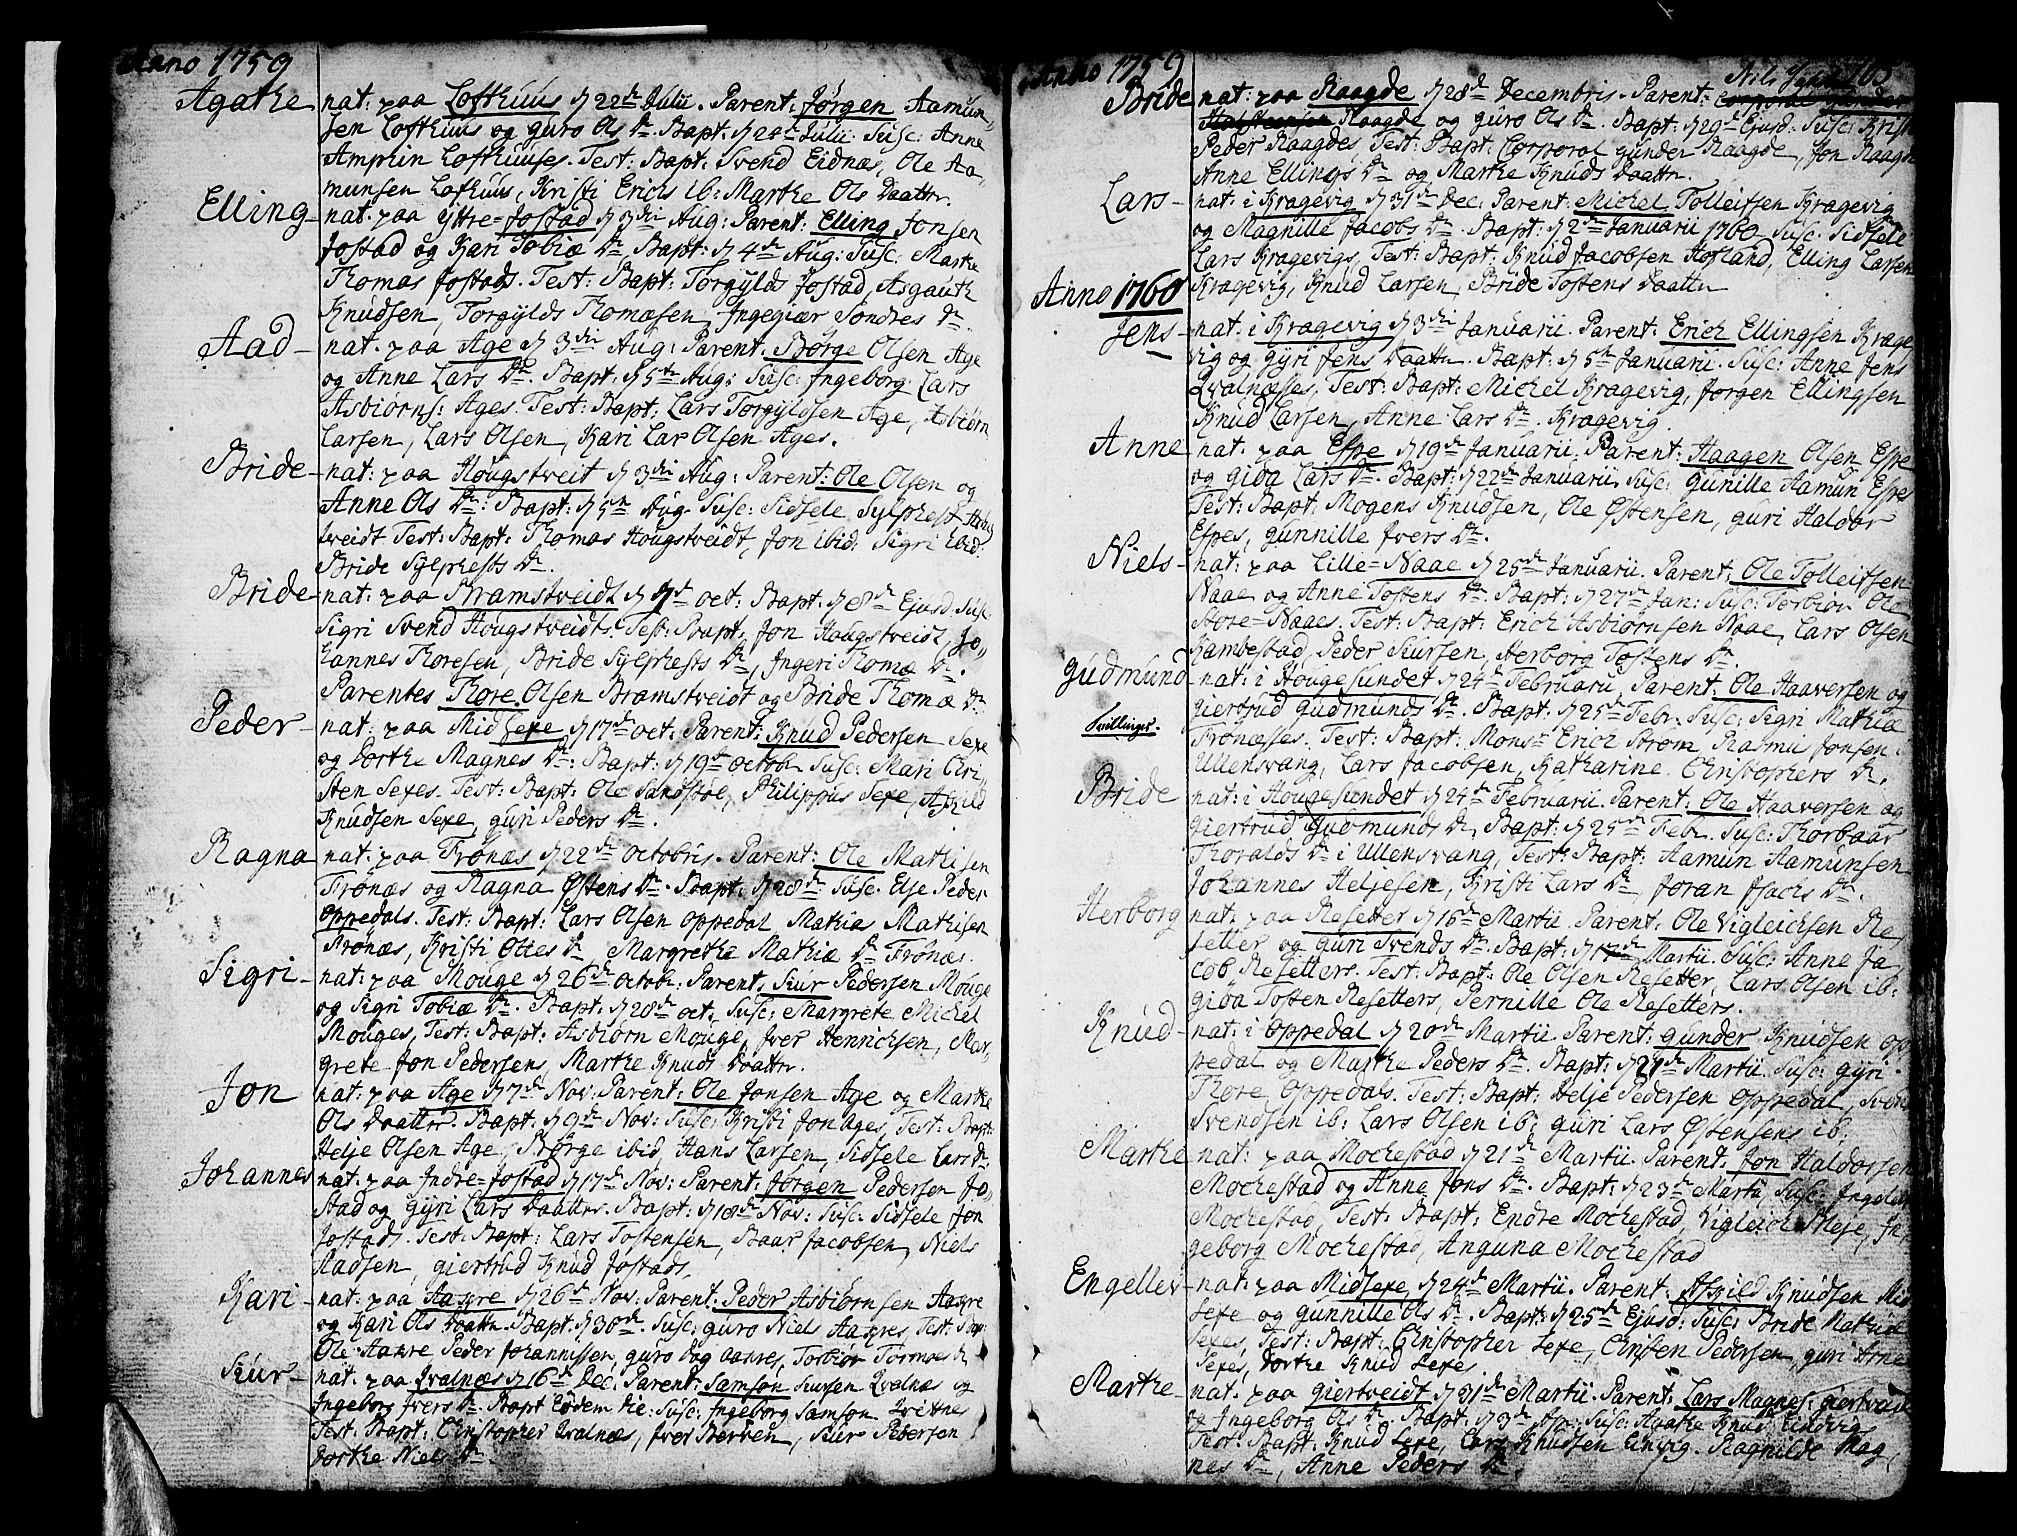 Anno 1759
Agathe nat: paa Lofthuus d 22de Julii. Parent: Jørgen Aamun,,
sen Lofthuus og guro Ols Dr. Bapt: d 24de Julii Susc: Anne
Amphin Lofthuuses. Test: Bapt: Svend Eidnæs, Ole Aa,,
munsen Lofthuus, Kristi Erichs ib: Marthe Ols Daattr.
Elling nat: paa Yttre=Jostad d 3die Aug: Parent: Elling Jonsen
Jostad og Kari Tobiæ Dr. Bapt: d 4de Aug: Susc: Marthe
Thomas Jostads. Test: Bapt: Torgyld Jostad, Asgauth
Knudsen, Torgylds Thomæsen, Ingegiær Sondres Dr.
Aad nat: paa Age d 3die Aug: Parent: Børge Olsen Age
og Anne Lars Dr. Bapt: d 5te Aug: Susc: Ingeborg Lars
Asbiørns: Ages. Test: Bapt: Lars Torgyldsen Age, Asbiørn
Larsen, Lars Olsen, Kari Lar Olsen Ages.
Bride nat: paa Hougstveit d 3die Aug: Parent: Ole Olsen og
Anne Ols Dr: Bapt: d 5te Aug. Susc: Sidsele Sylphest Houg
tveidt Test: Bapt: Thomas Hougstveidt, Jon ibid: Sigri ibid:
Bride Sylphests Dr.
Bride nat: paa Bramstveidt d 7de oct: Bapt: d 8de Ejusd: Susc
Sigri Svend Hougstveidts. Test: Bapt: Jon Hougstveidt, Jo,,
hannes Thoresen, Bride Sylphests Dr, Ingeri Thomæ Dr.
Parentes Thore Olsen Bramstveidt og Bride Thomæ Dr:
Peder nat: paa Midsexe d 17de oct: Parent: Knud Pedersen Sexe
og Dorthe Magnes Dr: Bapt: d 19de octobr Susc: Mari Chri,,
sten Sexes. Test: Bapt: Ole Sandstøe, Philippus Sexe, Askild
Knudsen Sexe, guri Peders Dr.
Ragna nat: paa Frønæs d 22de octobris. Parent: Ole Mathisen
Frønæs og Ragna Østens Dr. Bapt: d 28de Susc. Else Peder
Oppedals. Test: Bapt: Lars Olsen Oppedal Mathias Mathisen
Frønæs, Kristi Ottes Dr, Margrethe Mathiæ Dr Frønæs.
Sigri nat: paa Mouge d 26de octobr: Parent: Siur Pedersen Mouge
og Sigri Tobiæ Dr. Bapt: d 28de oct. Susc: Margrete Michel
Mouges, Test: Bapt: Asbiørn Mouge, Iver Henrichsen, Mar,,
grete Jon Pedersens, Marthe Knuds Daattr.
Jon nat: paa Age d 7de Nov: Parent: Ole Jonsen Age og Marthe
Ols Daattr. Bapt: d 9de Nov: Susc: Kristi Jon Ages, Test: Bapt:
Helje Olsen Age, Børge ibid Hans Larsen, Sidsele Lars Dr.
Johannes nat: paa Indre=Jostad d 17de Nov: Parent: Jørgen Pedersen Jo,,
stad og gyri Lars Daattr. Bapt: d 18de Nov: Susc: Sidsele Jon
Jostads. Test: Bapt: Lars Tostensen, Baar Jacobsen, Niels
Aadsen, giertrud Knud Jostads.
Kari nat: paa Aasre d 26de Nov: Parent: Peder Asbiørnsen Aasre
og Kari Ols Daattr. Bapt: d 30de. Susc: guro Niels Aasres, Test: Bap:
Ole Aasre Peder Johannissen, guro Dag Aasres, Torbiør Tormoes Dr
Siur nat: paa Qvalnæs d 16de Dec: Parent: Samson Siursen Qvalnæs og
Ingeborg Ivers Dr. Bapt Eodem Die: Susc: Ingeborg Samson Hvittnes
Test: Bapt: Christopher Qvalnæs, Iver Berven, Siur Pedersen
Dorthe Niels Dr.
Anno 1759 Nils 163
Bride nat: paa Raagde d 28de Decembris. Parent: Corporal Gunder
Raagde og guro Ols Dr. Bapt: d 29de Ejusd. Susc: Kristi
Peder Raagdes, Test: Bapt: Corporal gunder Raagde, Jon Raagde
Anne Ellings Dr og Marthe Knuds Daattr.
Lars nat: i Kragevig d 31de Dec: Parent: Michel Tolleifsen Kragevig
og Magnille Jacobs Dr. Bapt: d 2de Januarii 1760 Susc: Sidsele
Lars Kragevigs, Test: Bapt: Knud Jacobsen Hofland, Elling Larsen
Kragevig, Knud Larsen, Bride Tostens Daattr
Anno 1760
Jens nat: i Kragevig d 3die Januarii. Parent: Erich Ellingsen Krage,,
vig og gyri Jens Daattr. Bapt: d 5te Januarii. Susc: Anne Jens
Qvalnæsses, Test: Bapt: Michel Kragevig, Jørgen Ellingsen
Knud Larsen, Anne Lars Dr. Kragevig.
Anne nat: paa Espe d 19de Januarii. Parent: Haagen Olsen Espe
og gida Lars Dr. Bapt: d 22de Januarii, Susc: gunille Aamun Espes
Test: Bapt: Mogens Knudsen, Ole Østensen, guri Haldor
Espes, gunnille Ivers Dr.
Niels nat: paa Lille=Naae d 25de Januarii. Parent: Ole Tolleifsen
Naae og Anne Tostens Dr. Bapt: d 27de Jan: Susc: Torbiør Ole
Store=Naaes. Test: Bapt: Erich Asbiørnsen Naae, Lars Olsen
Hambestad, Peder Siursen, Herborg Tostens Dr.
Gudmund nat: i Hougesundet d 24de Februarii, Parent: Ole Haaversen og
giertrud gudmunds Dr. Bapt: d 25de Febr: Susc: Sigri Mathiæ
Tvillinger. Frønæsses. Test: Bapt: Monsr Erich Strøm, Rasmu Jonsen i
Ullensvang, Lars Jacobsen, Katharine Christophers Dr.
Bride nat: i Hougesundet d 24de Februarii. Parent: Ole Haaversen og
giertrud gudmunds Dr. Bapt: d 25de Febr. Susc: Thorbaar
Thoralds Dr i Ullensvang, Test: Bapt: Aamun Aamunsen
Johannes Heljesen, Kristi Lars Dr, Joran Isachs Dr.
Herborg nat: paa Resetter d 16de Martii. Parent: Ole Vigleichsen Re,,
setter og guri Svends Dr. Bapt: d 17de Martii. Susc: Anne Ja,,
cob Resetters. Test: Bapt: Ole Olsen Resetter, Lars Olsen ib:
gida Tosten Resetters, Pernille Ole Resetters.
Knud nat: i Oppedal d 20de Martii. Parent: gunder Knudsen Op,,
pedal og Marthe Peders Dr. Bapt: d 21de Martii. Susc: gyri
Thore Oppedals. Test: Bapt: Helje Pedersen Oppedal, Svend
Svendsen ib: Lars Olsen ib: guri Lars Østensens ib:
Marthe nat: paa Mochestad d 21de Martii. Parent: Jon Haldorsen
Mochestad og Anne Jons Dr. Bapt: d 23de Martii Susc: Ingeleiv
Mochestad, Test: Bapt: Endre Mochestad, Vigleich Alsje, In,,
geborg Mochestad, Anguna Mochestad
Engellev nat: paa Midsexe d 24de Martii. Parent: Askild Knudsen Mid
sexe og gunnille Ols Dr. Bapt: d 25de Ejusd: Susc: Bride Mathiæ
Sexes, Test: Bapt: Christopher Sexe, Christen Pedersen, guri Arne
Sexes, Dorthe Knud Sexes.
Marthe nat: paa giertveidt d 31de Martii. Parent: Lars Magnes: giertveidt
og Ingeborg Ols Dr. Bapt: d 3de Apr: Susc: Agathe Knud Eindvig
Test: Bapt: Knud Sexe, Lars Knudsen Einvig. Ragnilde Mag,,
nes Dr, Anne Peders Dr.